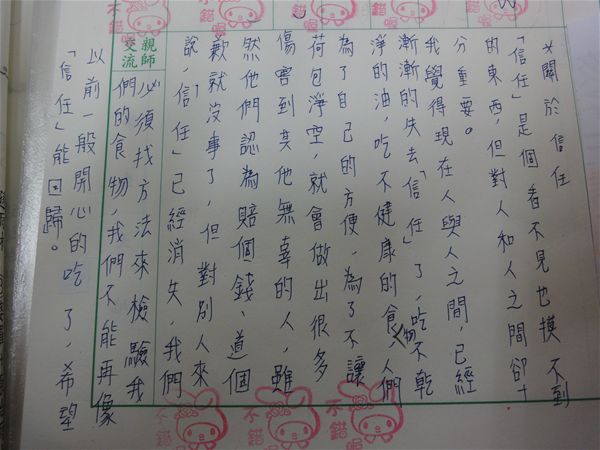 ×關於信任
「信任」是個看不見也摸不到
的東西，但對人和人之間卻十
分重要。
我覺得現在人與人之間，已經
漸漸的失去「信任」了，吃不乾
淨的油，吃不健康的食物，人們
為了自己的方便，為了不讓
荷包淨空，就會做出很多
傷害到其他無辜的人，雖
然他們認為賠個錢、道個
歉就沒事了，但對別人來
說，「信任」已經消失，我們
親師交流
必須找方法來檢驗我
們的食物，我們不能再像
以前一般開心的吃了，希望
「信任」能回歸。
不錯喔
不錯喔
不錯喔
不錯喔
不錯喔